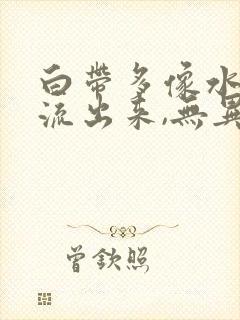 白帶多像水
流出来,無異
曾欽照